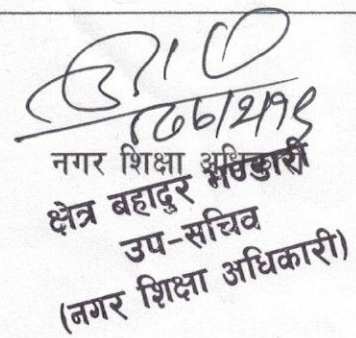 नगर शिक्षा अधिकारी
क्षेत्र बहादुर भण्डारी
उप-सचिव
(नगर शिक्षा अधिकारी)